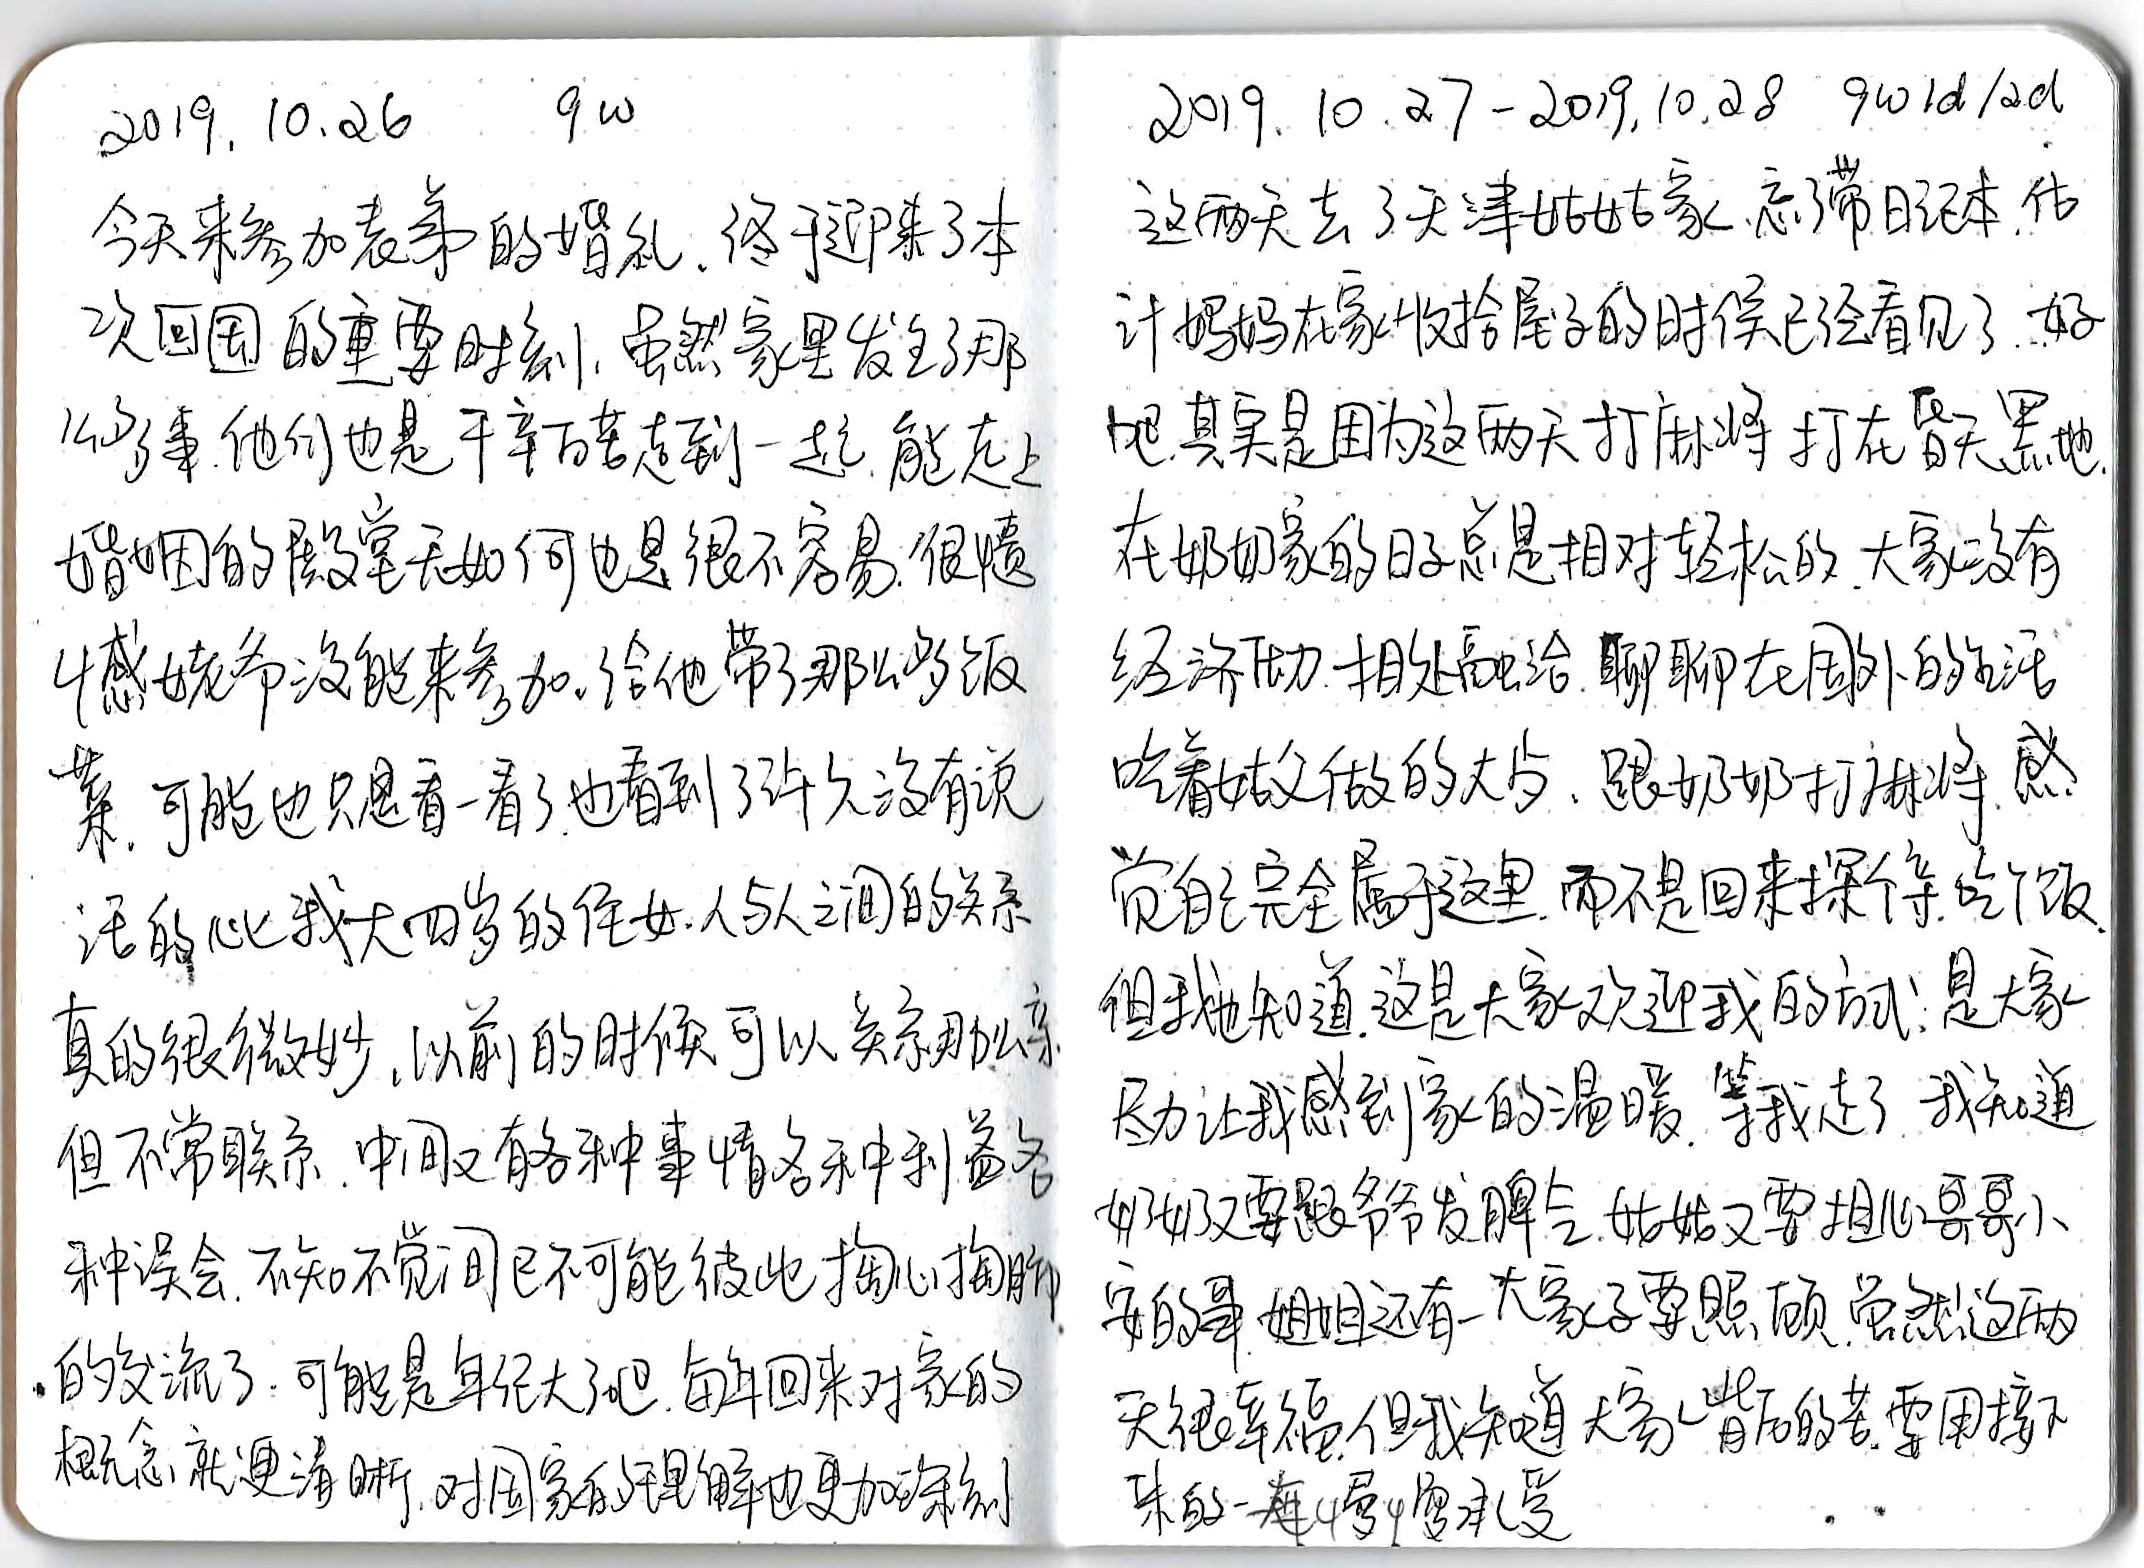 2019.10.26 9w
今天来参加表弟的婚礼.终于迎来了本
次回国的重要时刻.虽然家里发生了那
么多事.他们也是千辛百苦走到一起.能走上
婚姻的殿堂无如何也是很不容易.很遗
憾姥爷没能来参加.给他带了那么多饭
菜.可能也只是看一看了.也看到了许久没有说
话的比我大四岁的侄女.人与人之间的关系
真的很微妙.以前的时候可以关系那么亲
但不常联系.中间又有各种事情各种利益各
种误会.不知不觉间已不可能彼此掏心掏肺.
的交流了.可能是年纪大了吧.每年回来对家的
概念就更清晰.对国家的理解也更加深刻
2019.10.27-2019.10.28 9w1d/2d
这两天去了天津姑姑家.忘了带日记本.估
计妈妈在家收拾屋子的时侯已经看见了.好
吧.其实是因为这两天打麻将打在昏天黑地.
在奶奶家的日子总是相对轻松的.大家没有
经济压力.相处融洽.聊聊在国外的生活
吃着姑父做的大.跟奶奶打麻将.感
觉自己完全属于这里.而不是回来探个亲.吃个饭.
但我也知道.这是大家欢迎我的方式.是大家
尽力让我感到家的温暖.等我走了.我知道
奶奶又要跟爷爷发脾气.姑姑又要担心哥哥小
安的哥.姐姐还有一大家子要照顾.虽然这两
天很幸福.但我知道大家背后的苦.要用接下
来的一年慢慢承受